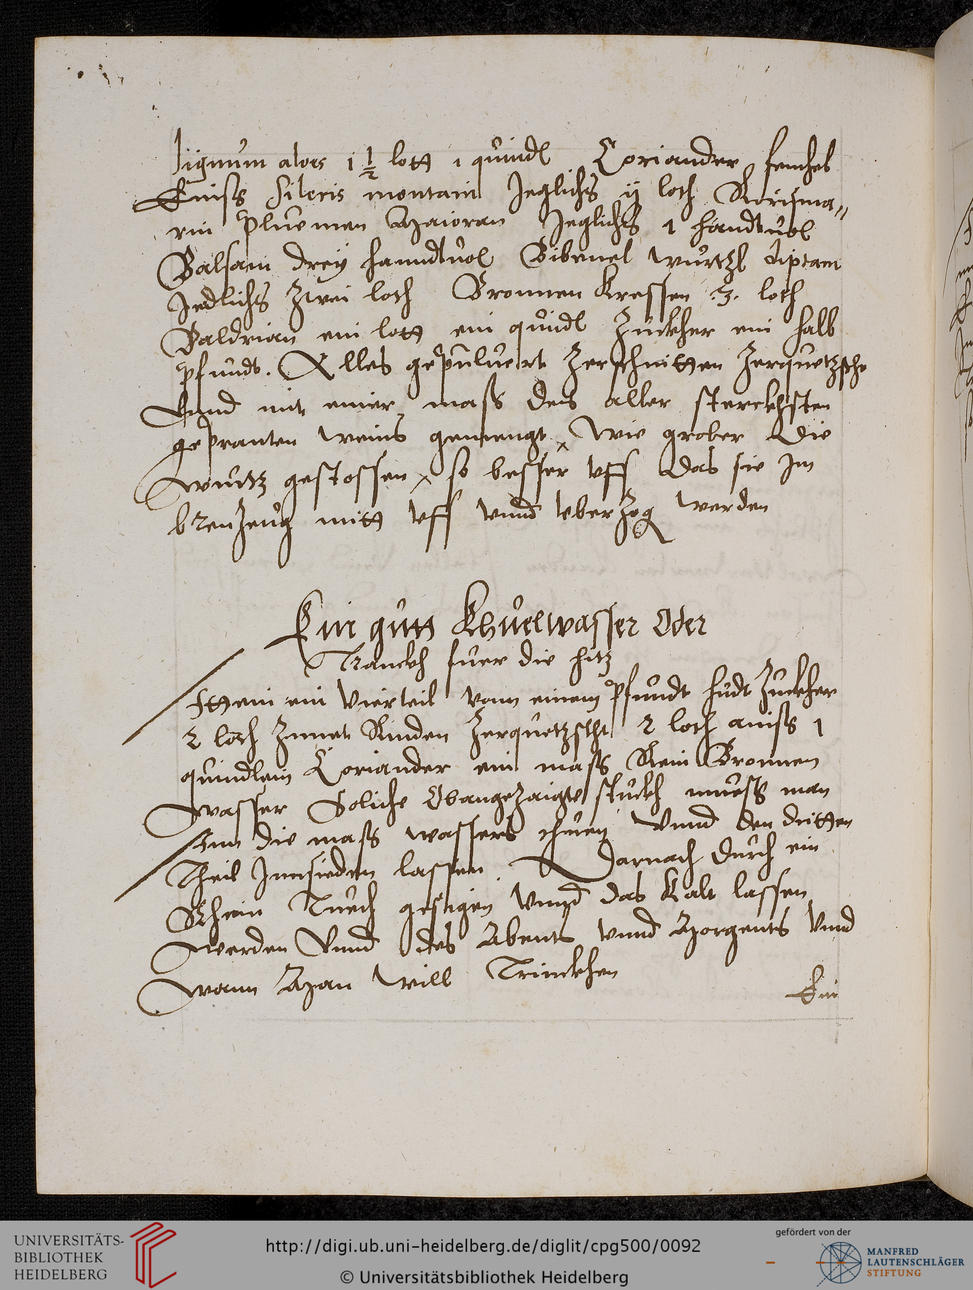 lignum aloes i 1/2 lott 1 quindl Coriander fenchel
Eniss Sileris montani Jeglichs ij loth Rorißma„
rin pluemen Maioran Jeglichs 1 handtuol
Balsam drey hanndtuol Bibenel wurtzl diptam
Jedlichs zwei loth Bronnen Kressen .3. loth
Baldrian ein lott ein quindl Zuckher ein halb
pfundt. Alles gepuluert zerschnitten zerquetzscht
Vnnd mit einer mass des aller sterckhsten
gepranten weins gemengt, wie grober die
wurtz gestossen, so besser vff das sie Im
brenzeug mitt vff vnnd vberzog werden
Ein gutt Khuelwasser Oder
Tranckh fuer die hitz
Ittem ein Vierteil vonn einem pfundt hudt Zuckher
2 loth Zimet Rinden Zerquetzscht 2 loth aniss 1
quindlein Coriander ein mass Rein Bronnen
Wasser Soliche Obangezaigte stuckh muess man
Inn die mass wassers thuen Vnnd den dritten
Theil Innsieden lassen. Darnach durch ein
Rhein Tuech gesigen vnnd das Kalt lassen
werden Vnnd des Abents vnnd Morgents Vnd
wann Man will Trinckhen
Ein
UNIVERSITÄTS-
BIBLIOTHEK
HEIDELBERG
http://digi.ub.uni-heidelberg.de/diglit/cpg500/0092
© Universitätsbibliothek Heidelberg
gefördert von der
MANFRED
LAUTENSCHLÄGER
STIFTUNG